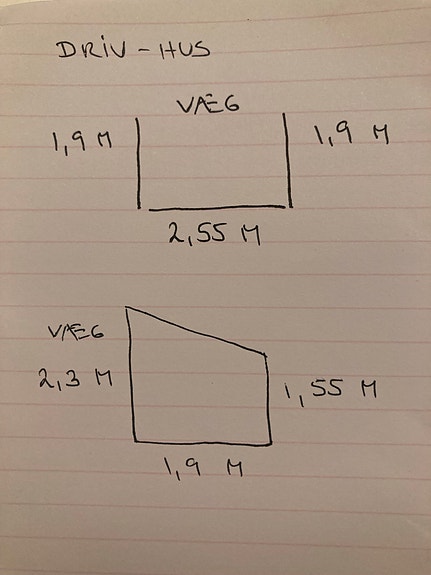 DRIV-HUS
VÆG
1,9 M
1,9 M
2,55 M
VÆG
2,3 M
1,55 M
1,9 M